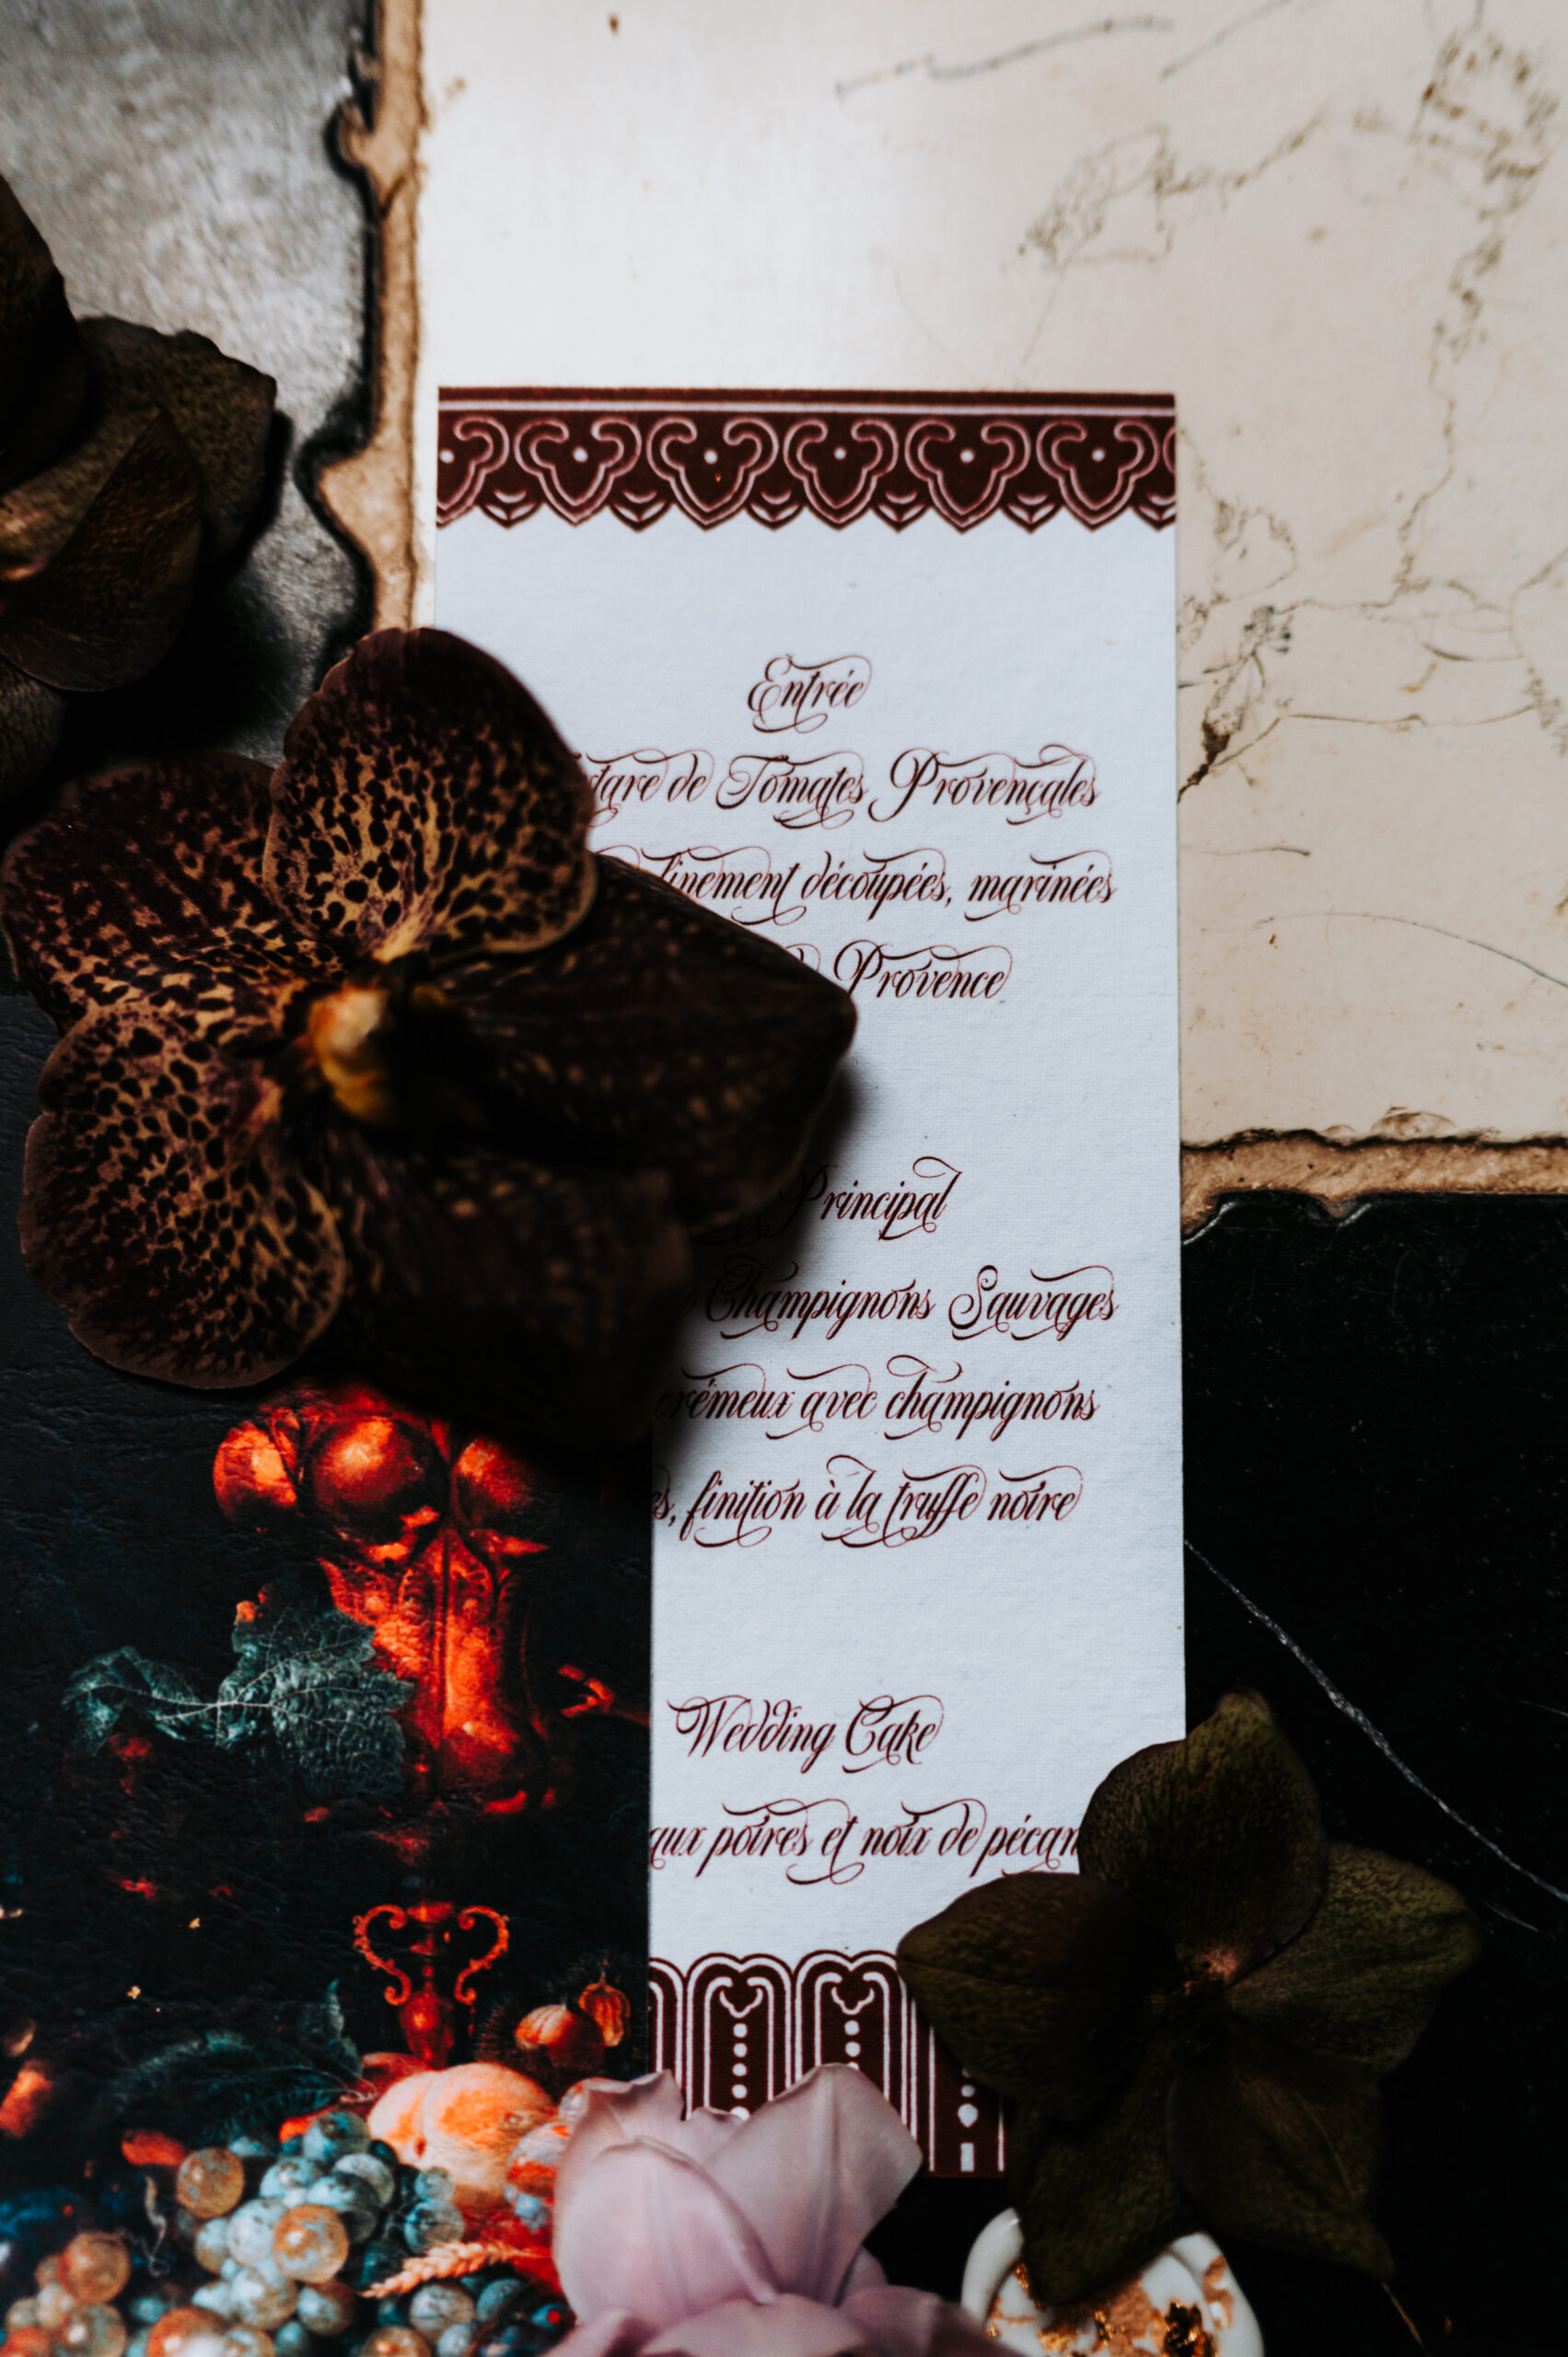 Entrée
de Tomates Provençales
finement découpées, marinées
Provence
Principal
Champignons Sauvages
crémeux avec champignons
finition à la truffe noire
Wedding Cake
aux poires et noix de pécan